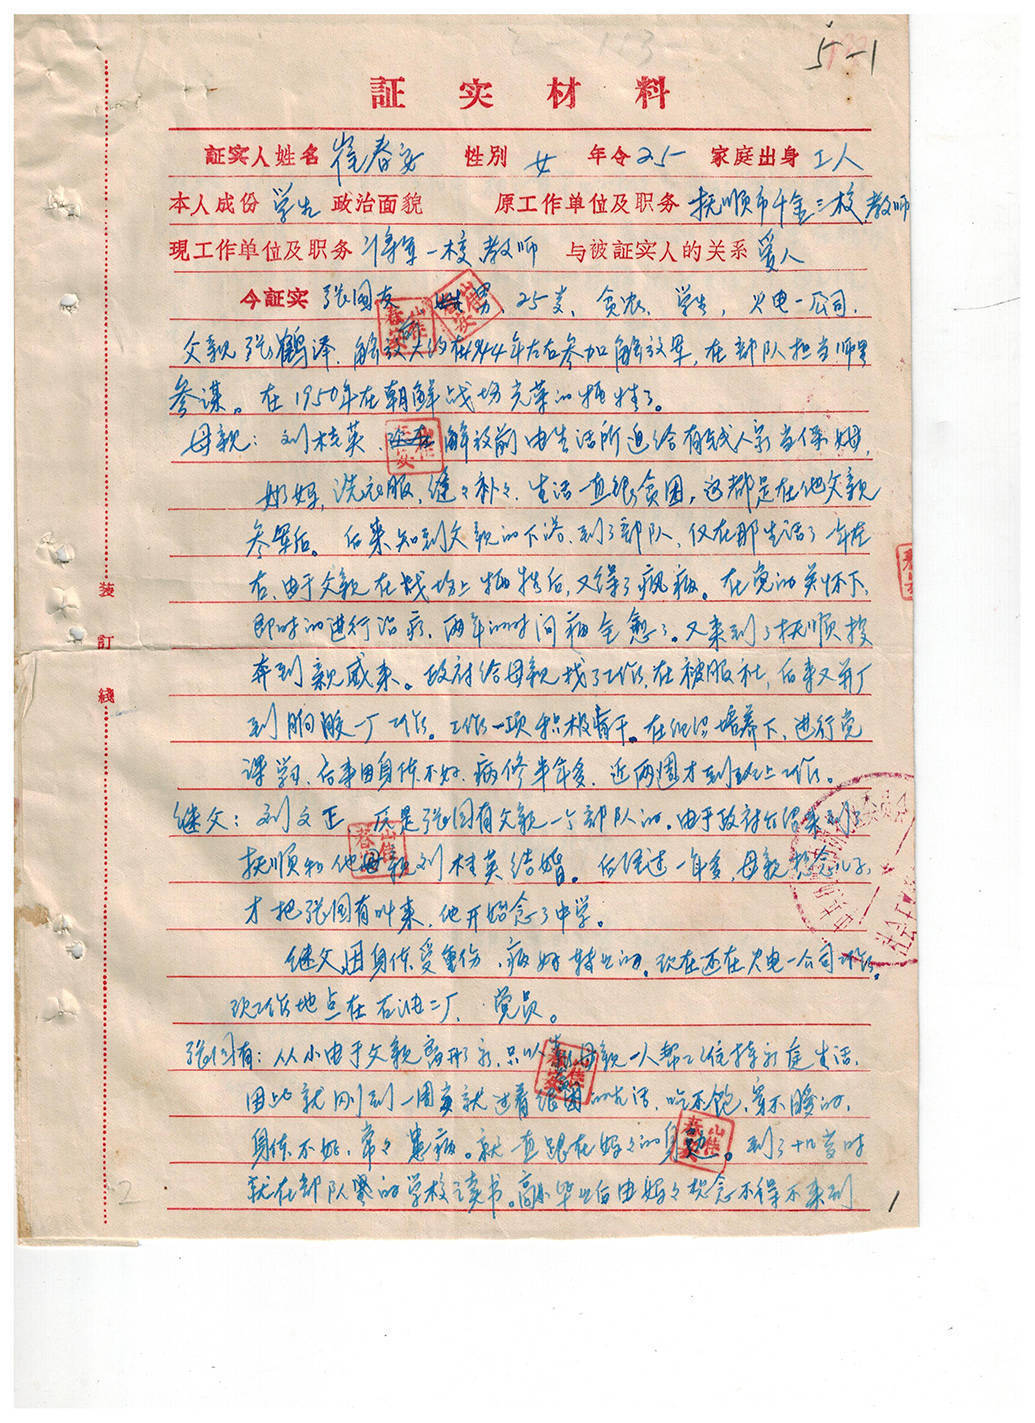 5-1
証实材料
証实人姓名 崔春安 性別 女 年令 25 家庭出身 工人
本人成份 学生 政治面貌 原工作单位及职务 抚顺市千金三校 教师
現工作单位及职务 将军一校 教师 与被証实人的关系 爱人
今証实 张国友 男, 25岁, 贫农, 学生, 火电一公司,
父亲张鹤泽, 解放前大约在1944年左右参加解放军, 在部队担当师里
参谋。在1950年在朝鲜战场光荣的牺牲了。
母亲: 刘桂英, 解放前由生活所迫给有钱人家当保姆,
奶妈, 洗衣服, 缝々补々, 生活一直很贫困, 这都是在他父亲
参军后。后来知到父亲的下落, 到了部队, 仅在那生活了一年左
右, 由于父亲在战场上牺牲后, 又得了疯病。在党的关怀下,
即时的进行治疗, 两年的时间病全愈了。又来到了抚顺投
奔到亲戚来。政府给母亲找了工作, 在被服社, 后来又并厂
到胸胶一厂工作。工作一项积极肯干。在组织培养下, 进行党
课学习, 后来因身体不好, 病修半年多, 近两週才到班上工作。
继父: 刘文正 是张国有父亲一个部队的。由于政府介绍来到
抚顺和他母亲刘桂英结婚。后经过一年多, 母亲想念儿子,
才把张国有叫来, 他开始念了中学。
继父因身体受重伤, 病好转业的。现在还在火电一公司工作。
现工作地点在石油二厂, 党员。
张国有: 从小由于父亲离开家, 只以靠母亲一人帮工维持家庭生活,
因此就刚到一周岁就过着很困的生活, 吃不饱, 穿不暖的,
身体不好, 常々患病。就一直跟在妈々的身边。到了十几岁时
就在部队里的学校读书。高小毕业后由妈々想念不得不来到
装
訂
綫
2
1